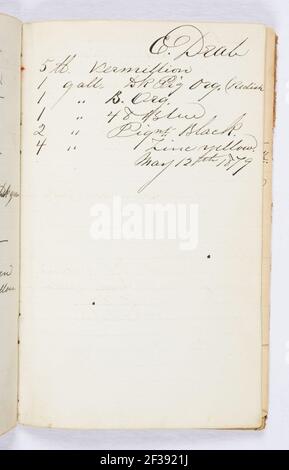 E. Drab
5 lb. Vermillion
1 gall. Dk Pig Org. (Redish
1 " B. Org.
1 " 40 Blue
2 " Pigmt Black.
4 " Zinc yellow.
May 12th 1879
alamy
Image ID: 2F3921J
www.alamy.com